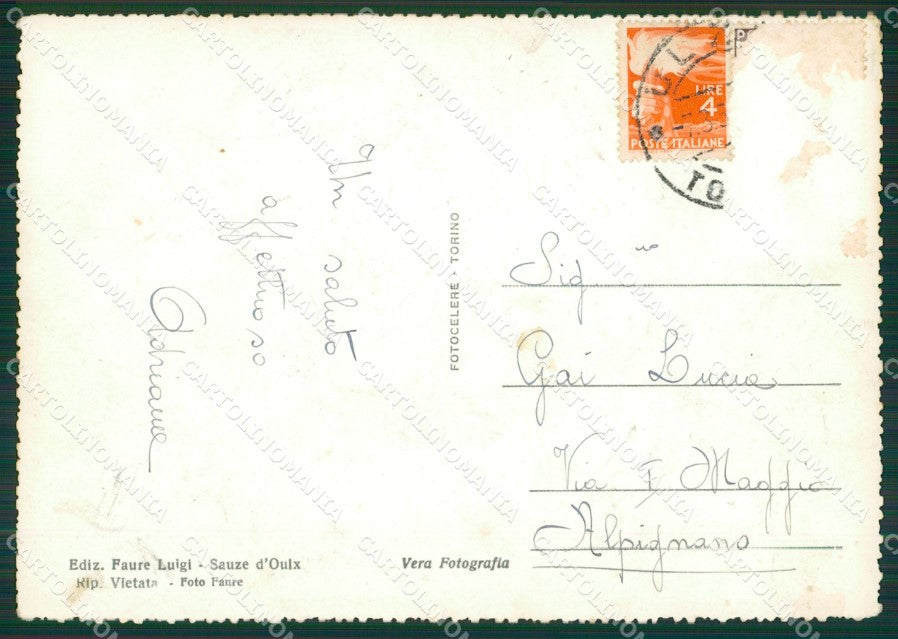 Un saluto
affettuoso
Adriana
FOTOCELERE · TORINO
LIRE
4
POSTE ITALIANE
TO
Sig.na
Gai Lucia
Via I Maggio
Alpignano
Ediz. Faure Luigi - Sauze d'Oulx
Rip. Vietata - Foto Faure
Vera Fotografia
CARTOLINOMANIA